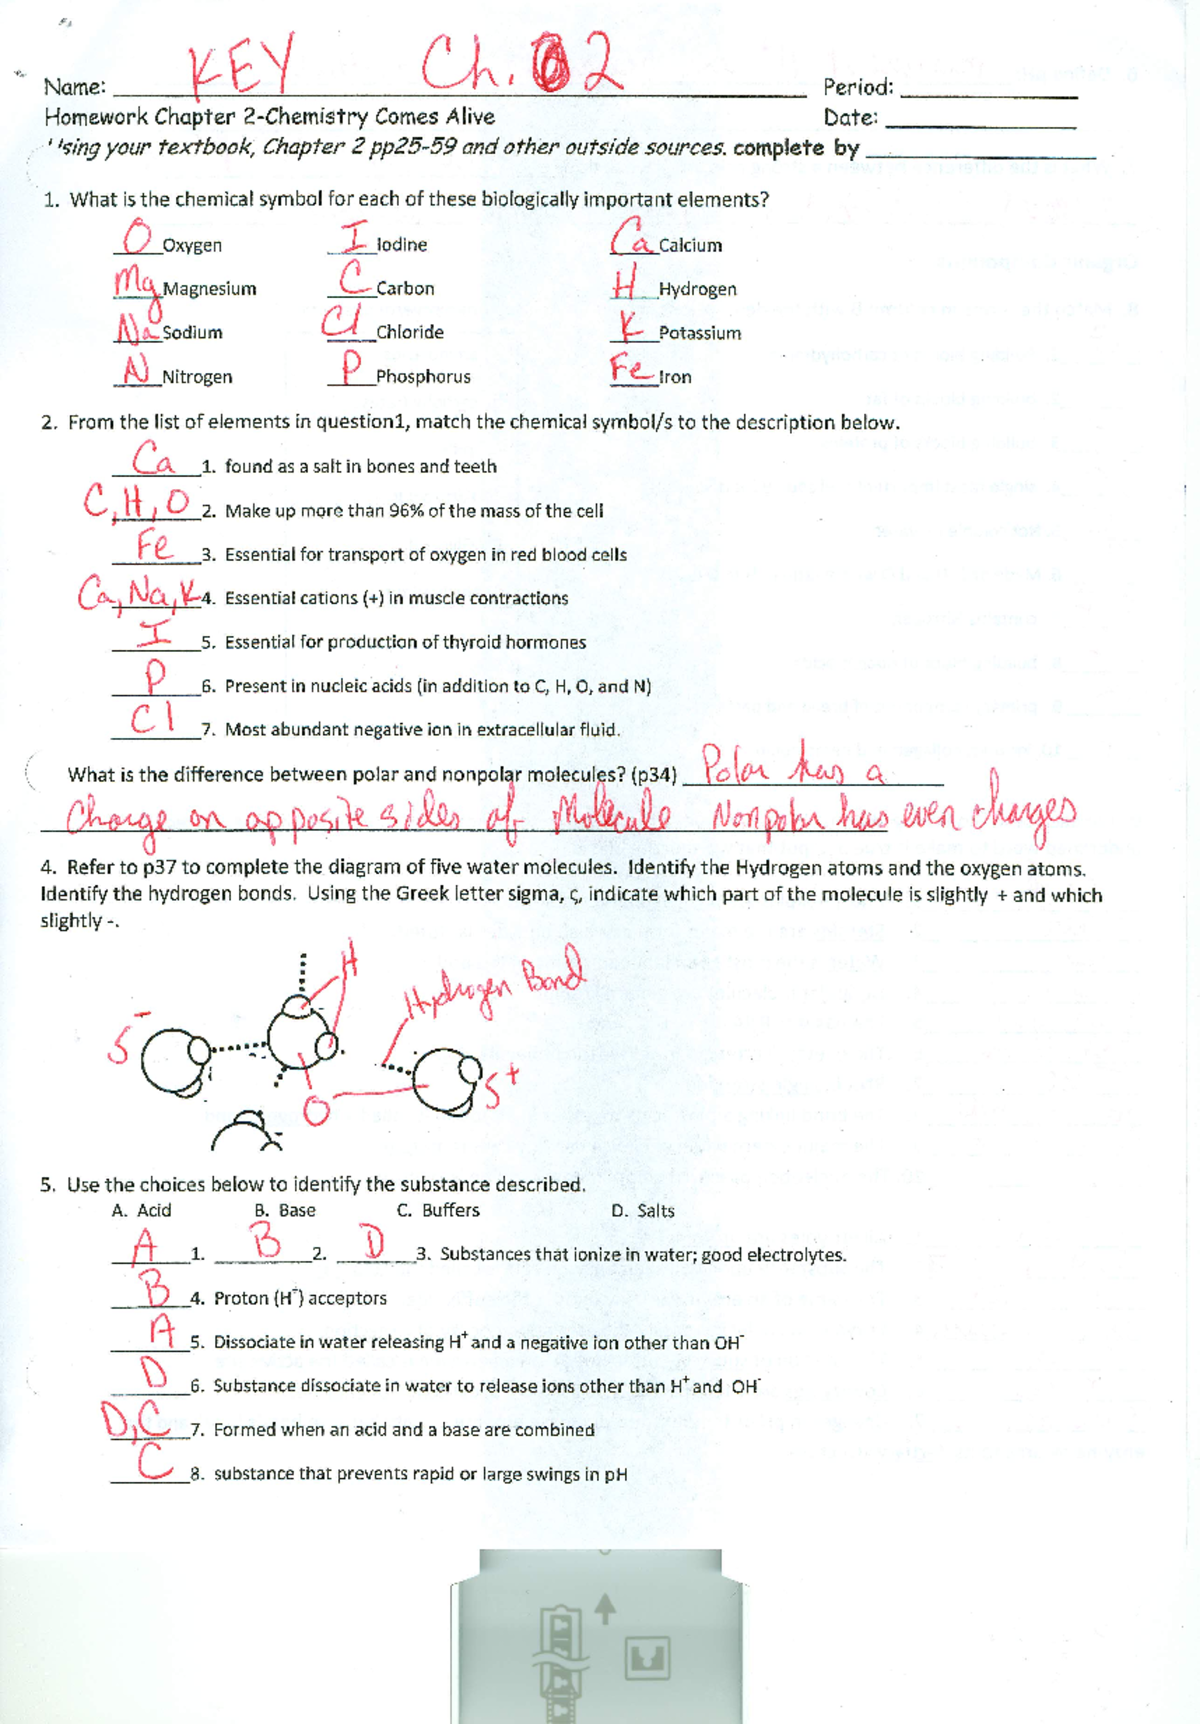 KEY Ch. 2
Name: Period:
Homework Chapter 2-Chemistry Comes Alive Date:
'sing your textbook, Chapter 2 pp25-59 and other outside sources. complete by
1. What is the chemical symbol for each of these biologically important elements?
O Oxygen I Iodine Ca Calcium
Mg Magnesium C Carbon H Hydrogen
Na Sodium Cl Chloride K Potassium
N Nitrogen P Phosphorus Fe Iron
2. From the list of elements in question1, match the chemical symbol/s to the description below.
Ca 1. found as a salt in bones and teeth
C, H, O 2. Make up more than 96% of the mass of the cell
Fe 3. Essential for transport of oxygen in red blood cells
Ca, Na, K 4. Essential cations (+) in muscle contractions
I 5. Essential for production of thyroid hormones
P 6. Present in nucleic acids (in addition to C, H, O, and N)
Cl 7. Most abundant negative ion in extracellular fluid.
What is the difference between polar and nonpolar molecules? (p34) Polar has a
Charge on opposite sides of Molecule Nonpolar has even charges
4. Refer to p37 to complete the diagram of five water molecules. Identify the Hydrogen atoms and the oxygen atoms.
Identify the hydrogen bonds. Using the Greek letter sigma, ς, indicate which part of the molecule is slightly + and which
slightly -.
H
Hydrogen Bond
S-
S+
O
5. Use the choices below to identify the substance described.
A. Acid B. Base C. Buffers D. Salts
A 1. B 2. D 3. Substances that ionize in water; good electrolytes.
B 4. Proton (H+) acceptors
A 5. Dissociate in water releasing H+ and a negative ion other than OH-
D 6. Substance dissociate in water to release ions other than H+ and OH-
D, C 7. Formed when an acid and a base are combined
C 8. substance that prevents rapid or large swings in pH